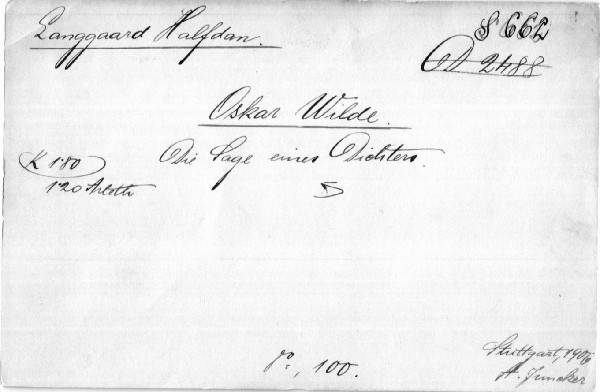 Langgaard Halfdan.
S 662
D 2488
Oskar Wilde.
Die Sage eines Dichters.
K 1·80
1·20
8°, 100.
Stuttgart, 1906
A. Juncker